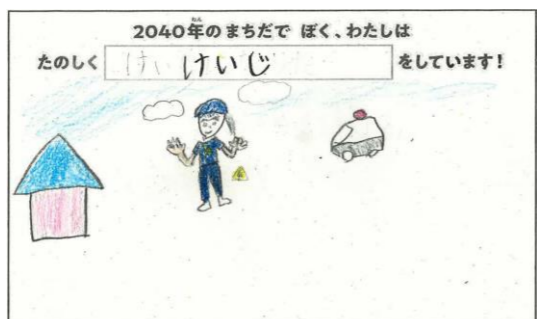 2040年のまちだで ぼく、わたしは
ねん
たのしく けいじ をしています!